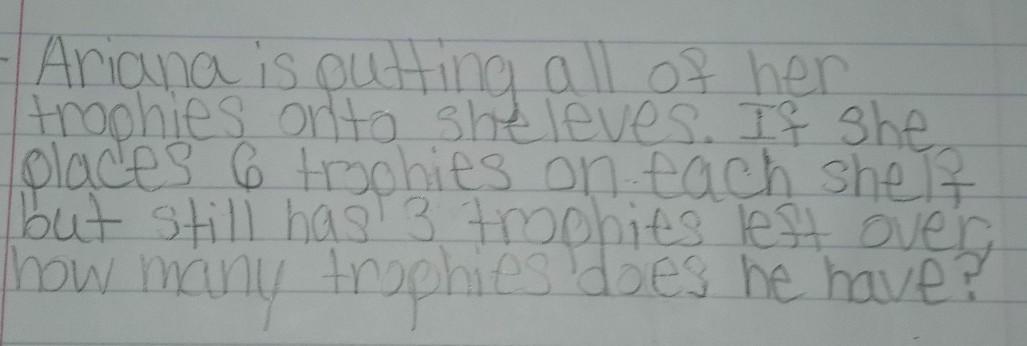 Ariana is putting all of her
trophies onto sheleves. If she
places 6 trophies on each shelf
but still has 3 trophies left over,
how many trophies does he have?